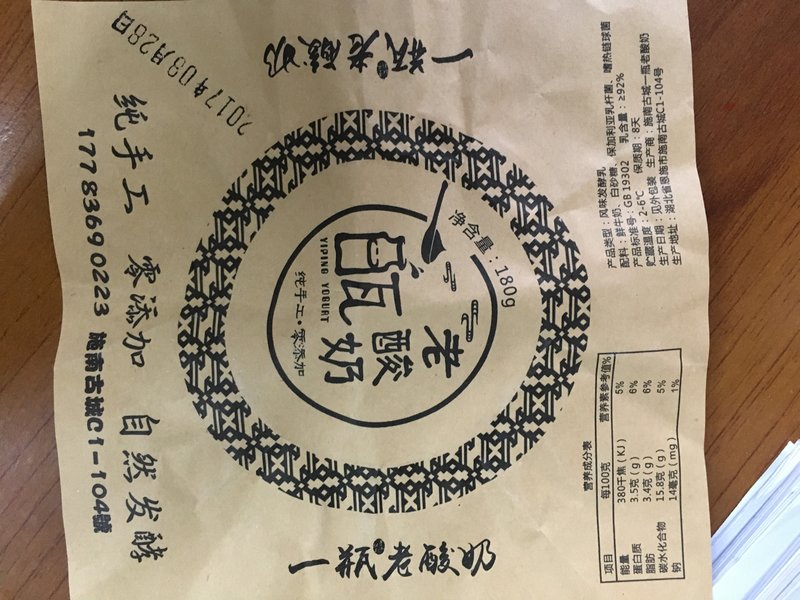 一瓶老酸奶
2017年09月28日
纯手工 零添加 自然发酵
17783690223 施南古城C1-104號
净含量：180g
老酸奶
YIPING YOGURT
纯手工·零添加
一瓶老酸奶
产品类型：风味发酵乳
配料：鲜牛奶、白砂糖、保加利亚乳杆菌、嗜热链球菌
产品标准号：GB 19302 乳含量：≥92%
贮藏温度：2-6℃ 保质期：8天
生产日期：见外包装 生产商：施南古城一瓶老酸奶
生产地址：湖北省恩施市施南古城C1-104号
营养成分表
项目 每100克 营养素参考值%
能量 380千焦（KJ） 5%
蛋白质 3.5克（g） 6%
脂肪 3.4克（g） 6%
碳水化合物 15.8克（g） 5%
钠 14毫克（mg） 1%